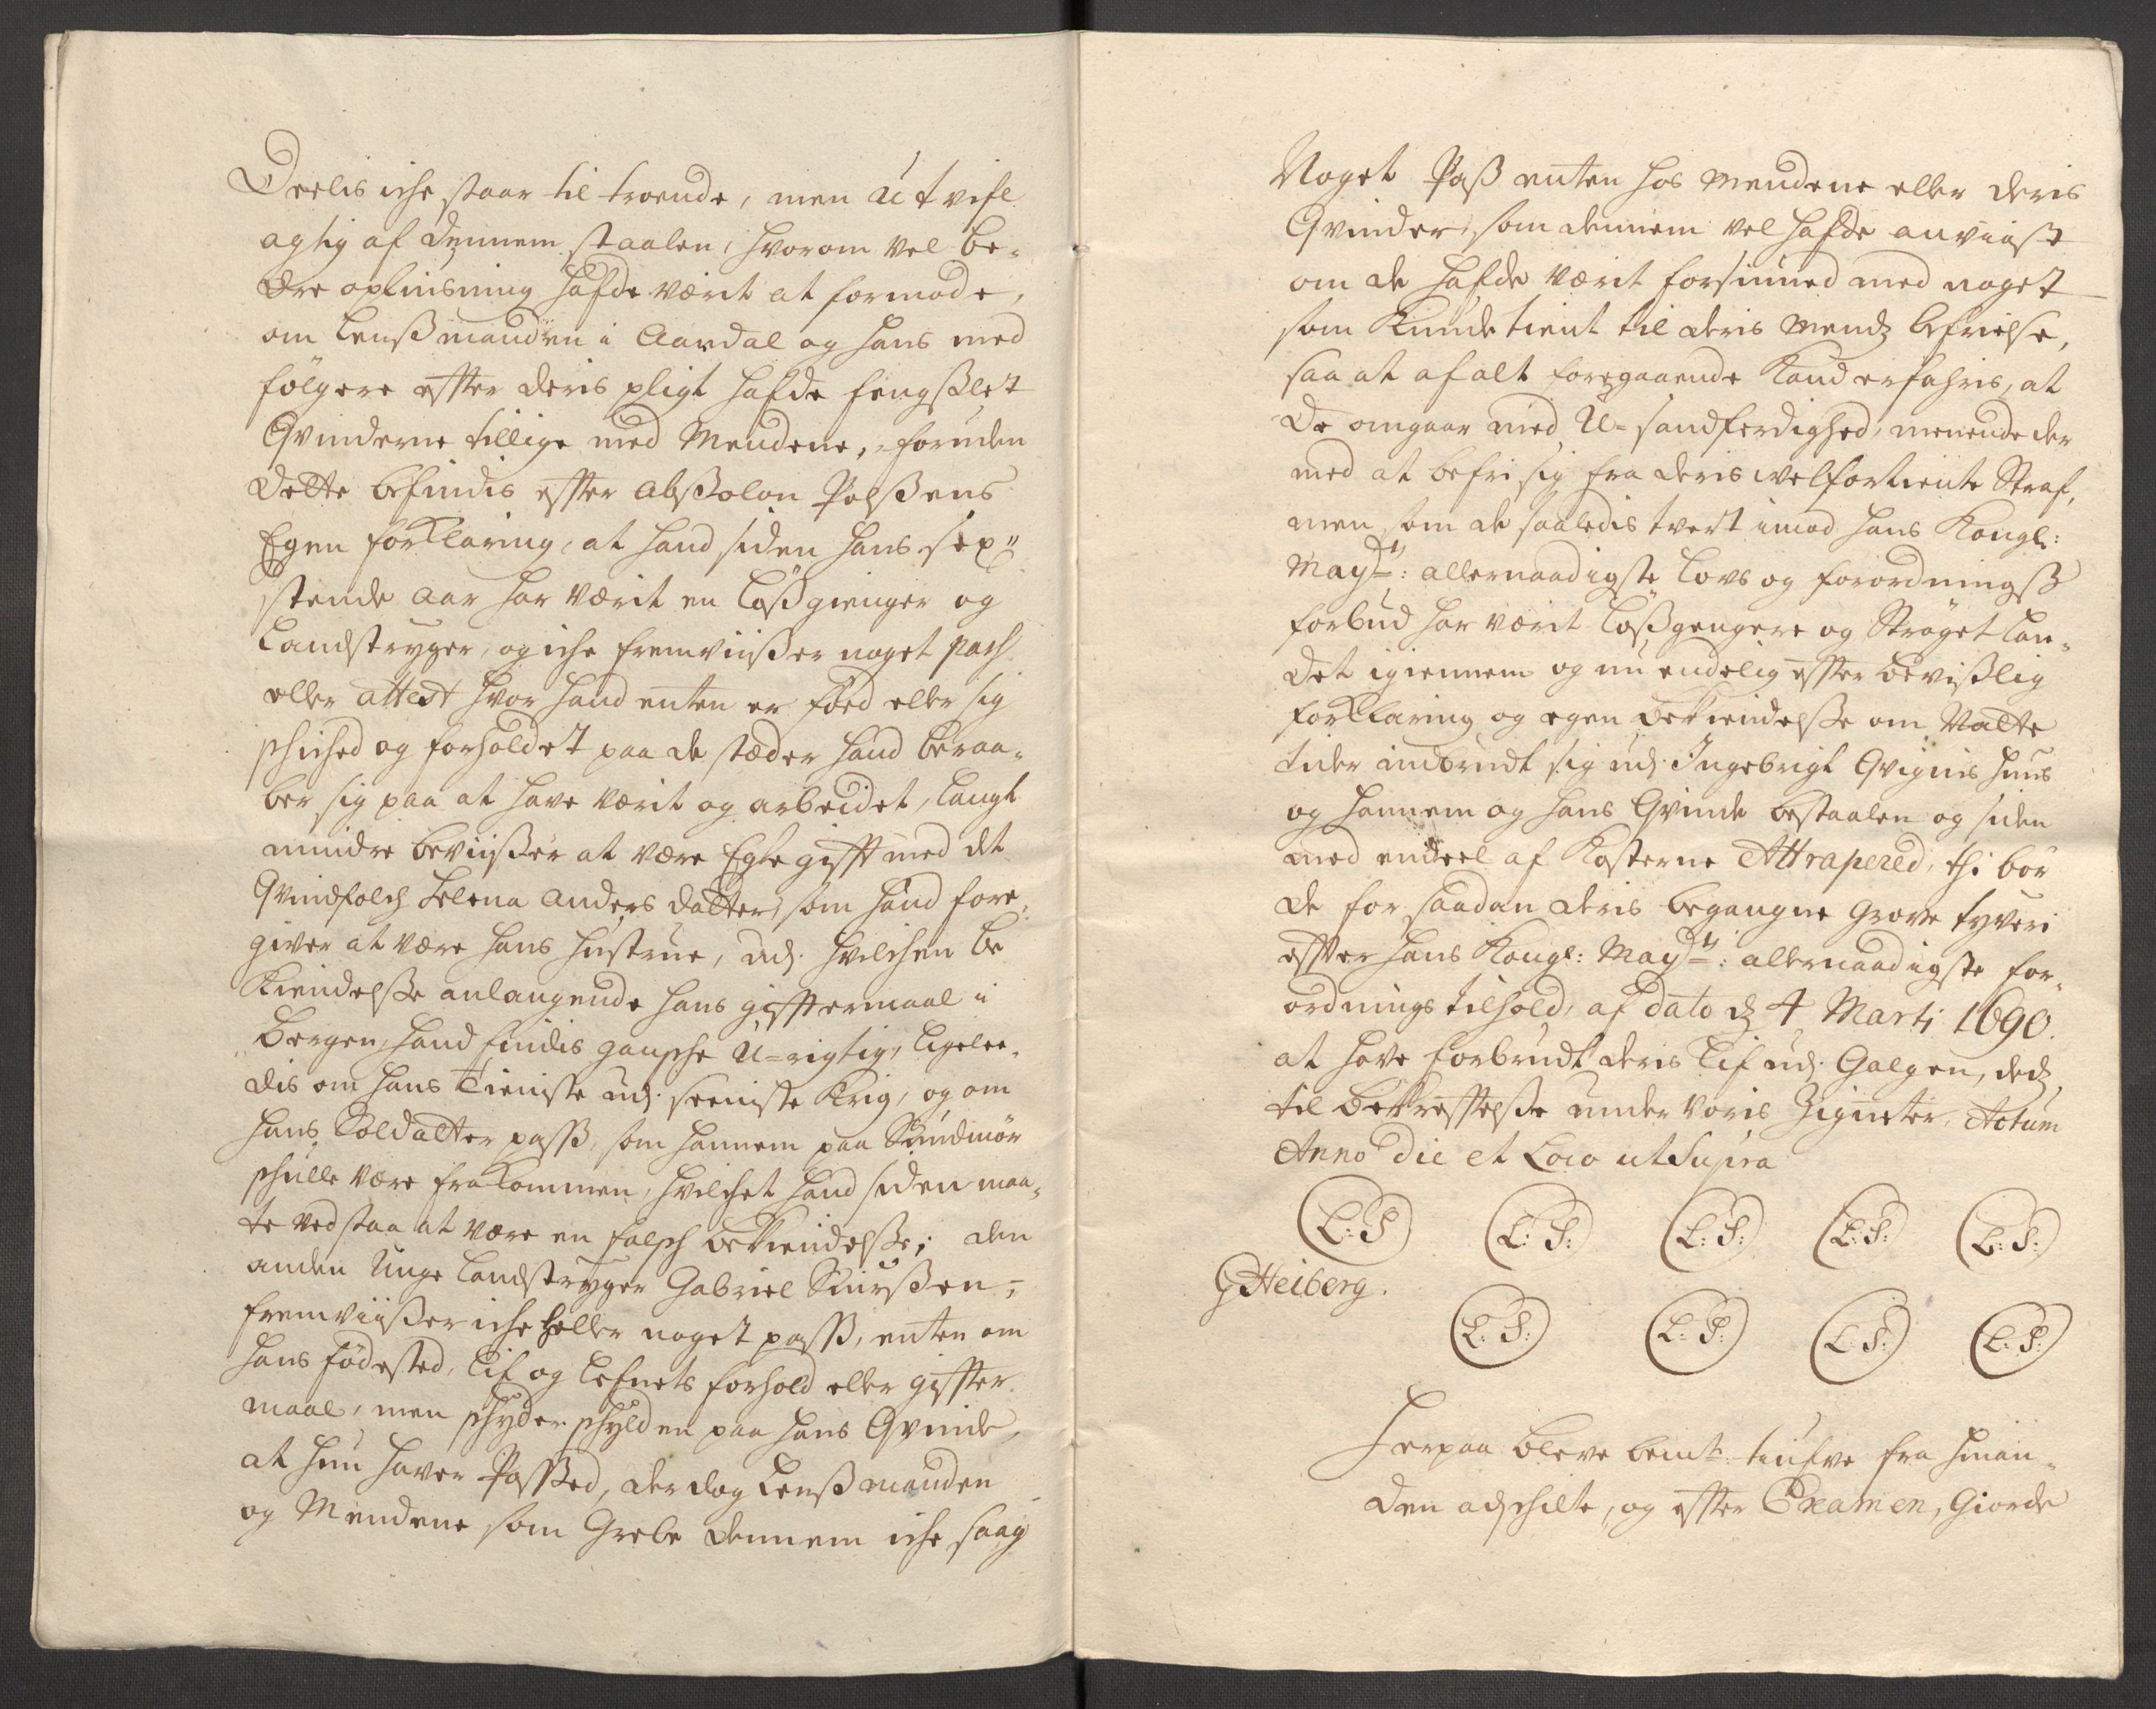 Deelis iche staar til troende, men Utvifl
agtig af dennem staalen, hvorom vel be-
dre oplysning hafde værit at formode,
om Lenßmanden i Aardal og hans med
følgere effter deris pligt hafde fengßlet
Qvinderne tillige med Mendene, foruden
Dette befindis effter Abßolon Polßens
Egen forKlaring, at hand siden hans sex-
stende aar har værit en Løßgienger og
Landstryger, og iche fremviißer noget pass
eller attest hvor hand enten er fød eller sig
schiched og forholdet paa de stæder hand beraa-
ber sig paa at have værit og arbeidet, langt
mindre beviißer at være Egte gifft med det
Qvindfolch Lelena Anders datter, som hand fore-
giver at være hans hustrue, udj hvilchen be
Kiendelße anlangende hans gifftermaal i
Bergen, hand findis gansche U-rigtig, ligelee-
dis om hans Tieniste udj seeniste Krig, og om
hans Soldatter pass, som hannem paa Sundmør
schulle være fraKommen, hvilchet hand siden maa-
te vedstaa at være en falsch beKiendelße; den
anden Unge Landstryger Gabriel Siurßen,
fremviißer iche heller noget pass, enten om
hans fødested, Lif og Lefnets forhold eller giffter
maal, men schyder schylden paa hans Qvinde,
at hun haver Passed, der dog Lenßmanden
og Mendene som Grebe dennem iche saag
Noget Paß enten hos Mendene eller deris
Qvinder, som dennem vel hafde anviist
om de hafde værit forsiuned med noget
som Kunde tient til deris Mends befrielse,
saa at af alt foregaaende Kand erfahris, at
De omgaar med U-sandferdighed, menende der
med at befri sig fra deris velfortiente Straf,
men som de saaledis tvert imod hans Kongl:
Mayts: allernaadigste Lovs og forordningß
forbud har værit Løßgengere og Strøget Lan-
det igiennem og nu endelig effter beviißlig
forKlaring og egen beKiendelße om Natte
tider indbrudt sig udj Ingebrigt Qvignis huus
og hannem og hans Qvinde bestaalen og siden
med endeel af Kosterne Attrapered, thi bør
de for saadan deris begangne Grove tyveri
effter hans Kongl: Mayts: allernaadigste for-
ordnings tilhold, af dato d 4 Marti 1690.
at have forbrudt deris Lif udj Galgen, dets
til beKrefftelße under voris Zigneter, Actum
Anno Die et Loco ut Supra
L:S L:S: L:S: L:S: L:S:
GHeiberg.
L:S: L:S: L:S: L:S:
Herpaa bleve bemte: tiufve fra hinan-
den adschilte, og effter Examen, Giorde